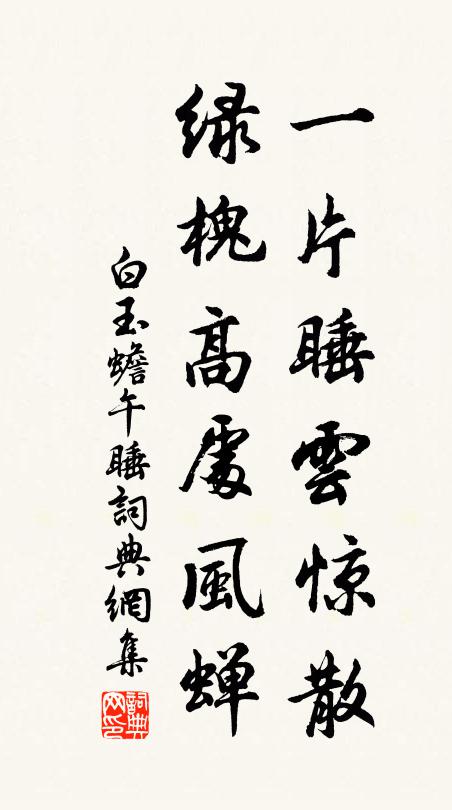 一片睡雲惊散
绿槐高處風蝉
白玉蟾午睡詞典網集
詞典網印